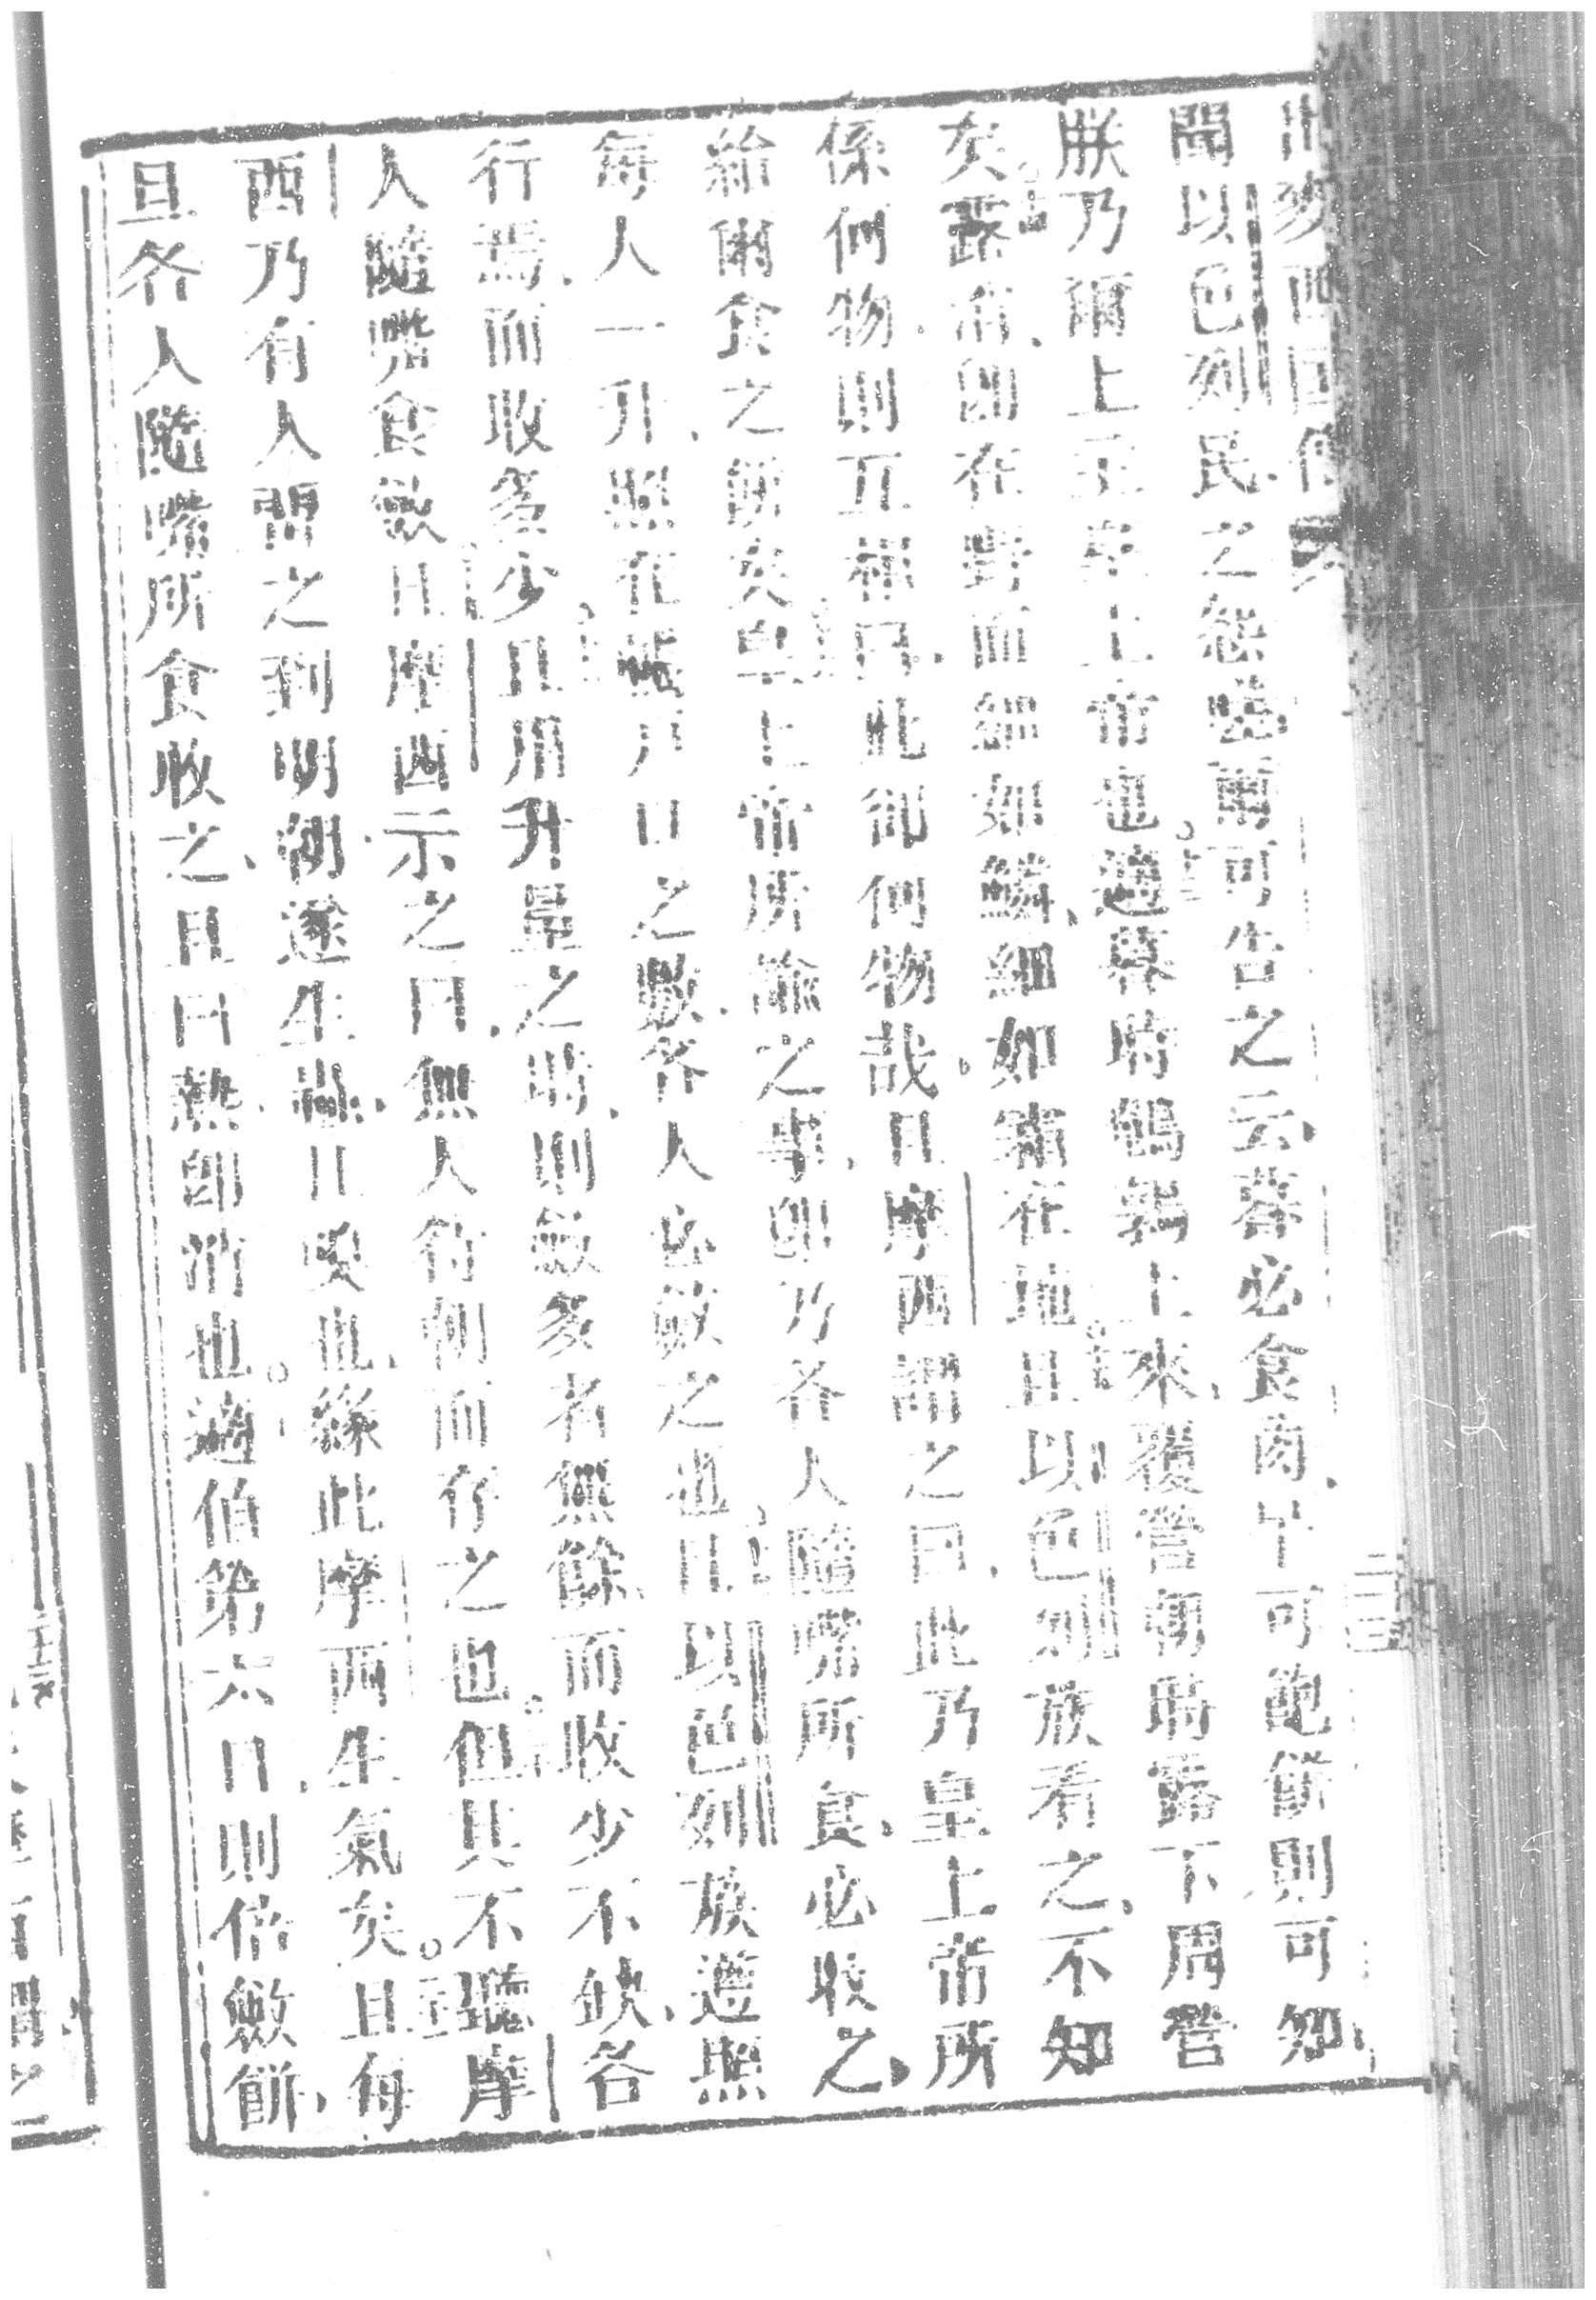 出麥西國傳
聞以色列民之怨 爾可告之云暮必食肉早可飽餅則可知
朕乃爾上主皇上帝也適暮時鵪鶉上來覆營朝時露下周營
矣露消團在野而細如鱗細如霜在地且以色列族看之不知
係何物則互相曰此卻何物哉且摩西謂之曰此乃皇上帝所
給爾食之餅矣皇上帝所諭之事卽乃各人隨嘴所食必收之
每人一升照在帳戶口之數各人必斂之也且以色列族遵照
行焉而收多少且用升量之時則斂多者無餘而收少不缺各
人隨嘴食斂且摩西示之曰無人待朝而存之也但其不聽摩
西乃有人留之到明朝遂生蟲且臭也緣此摩西生氣矣且每
旦各人隨嘴所食收之且日熱卽消也適値第六日則倍斂餅